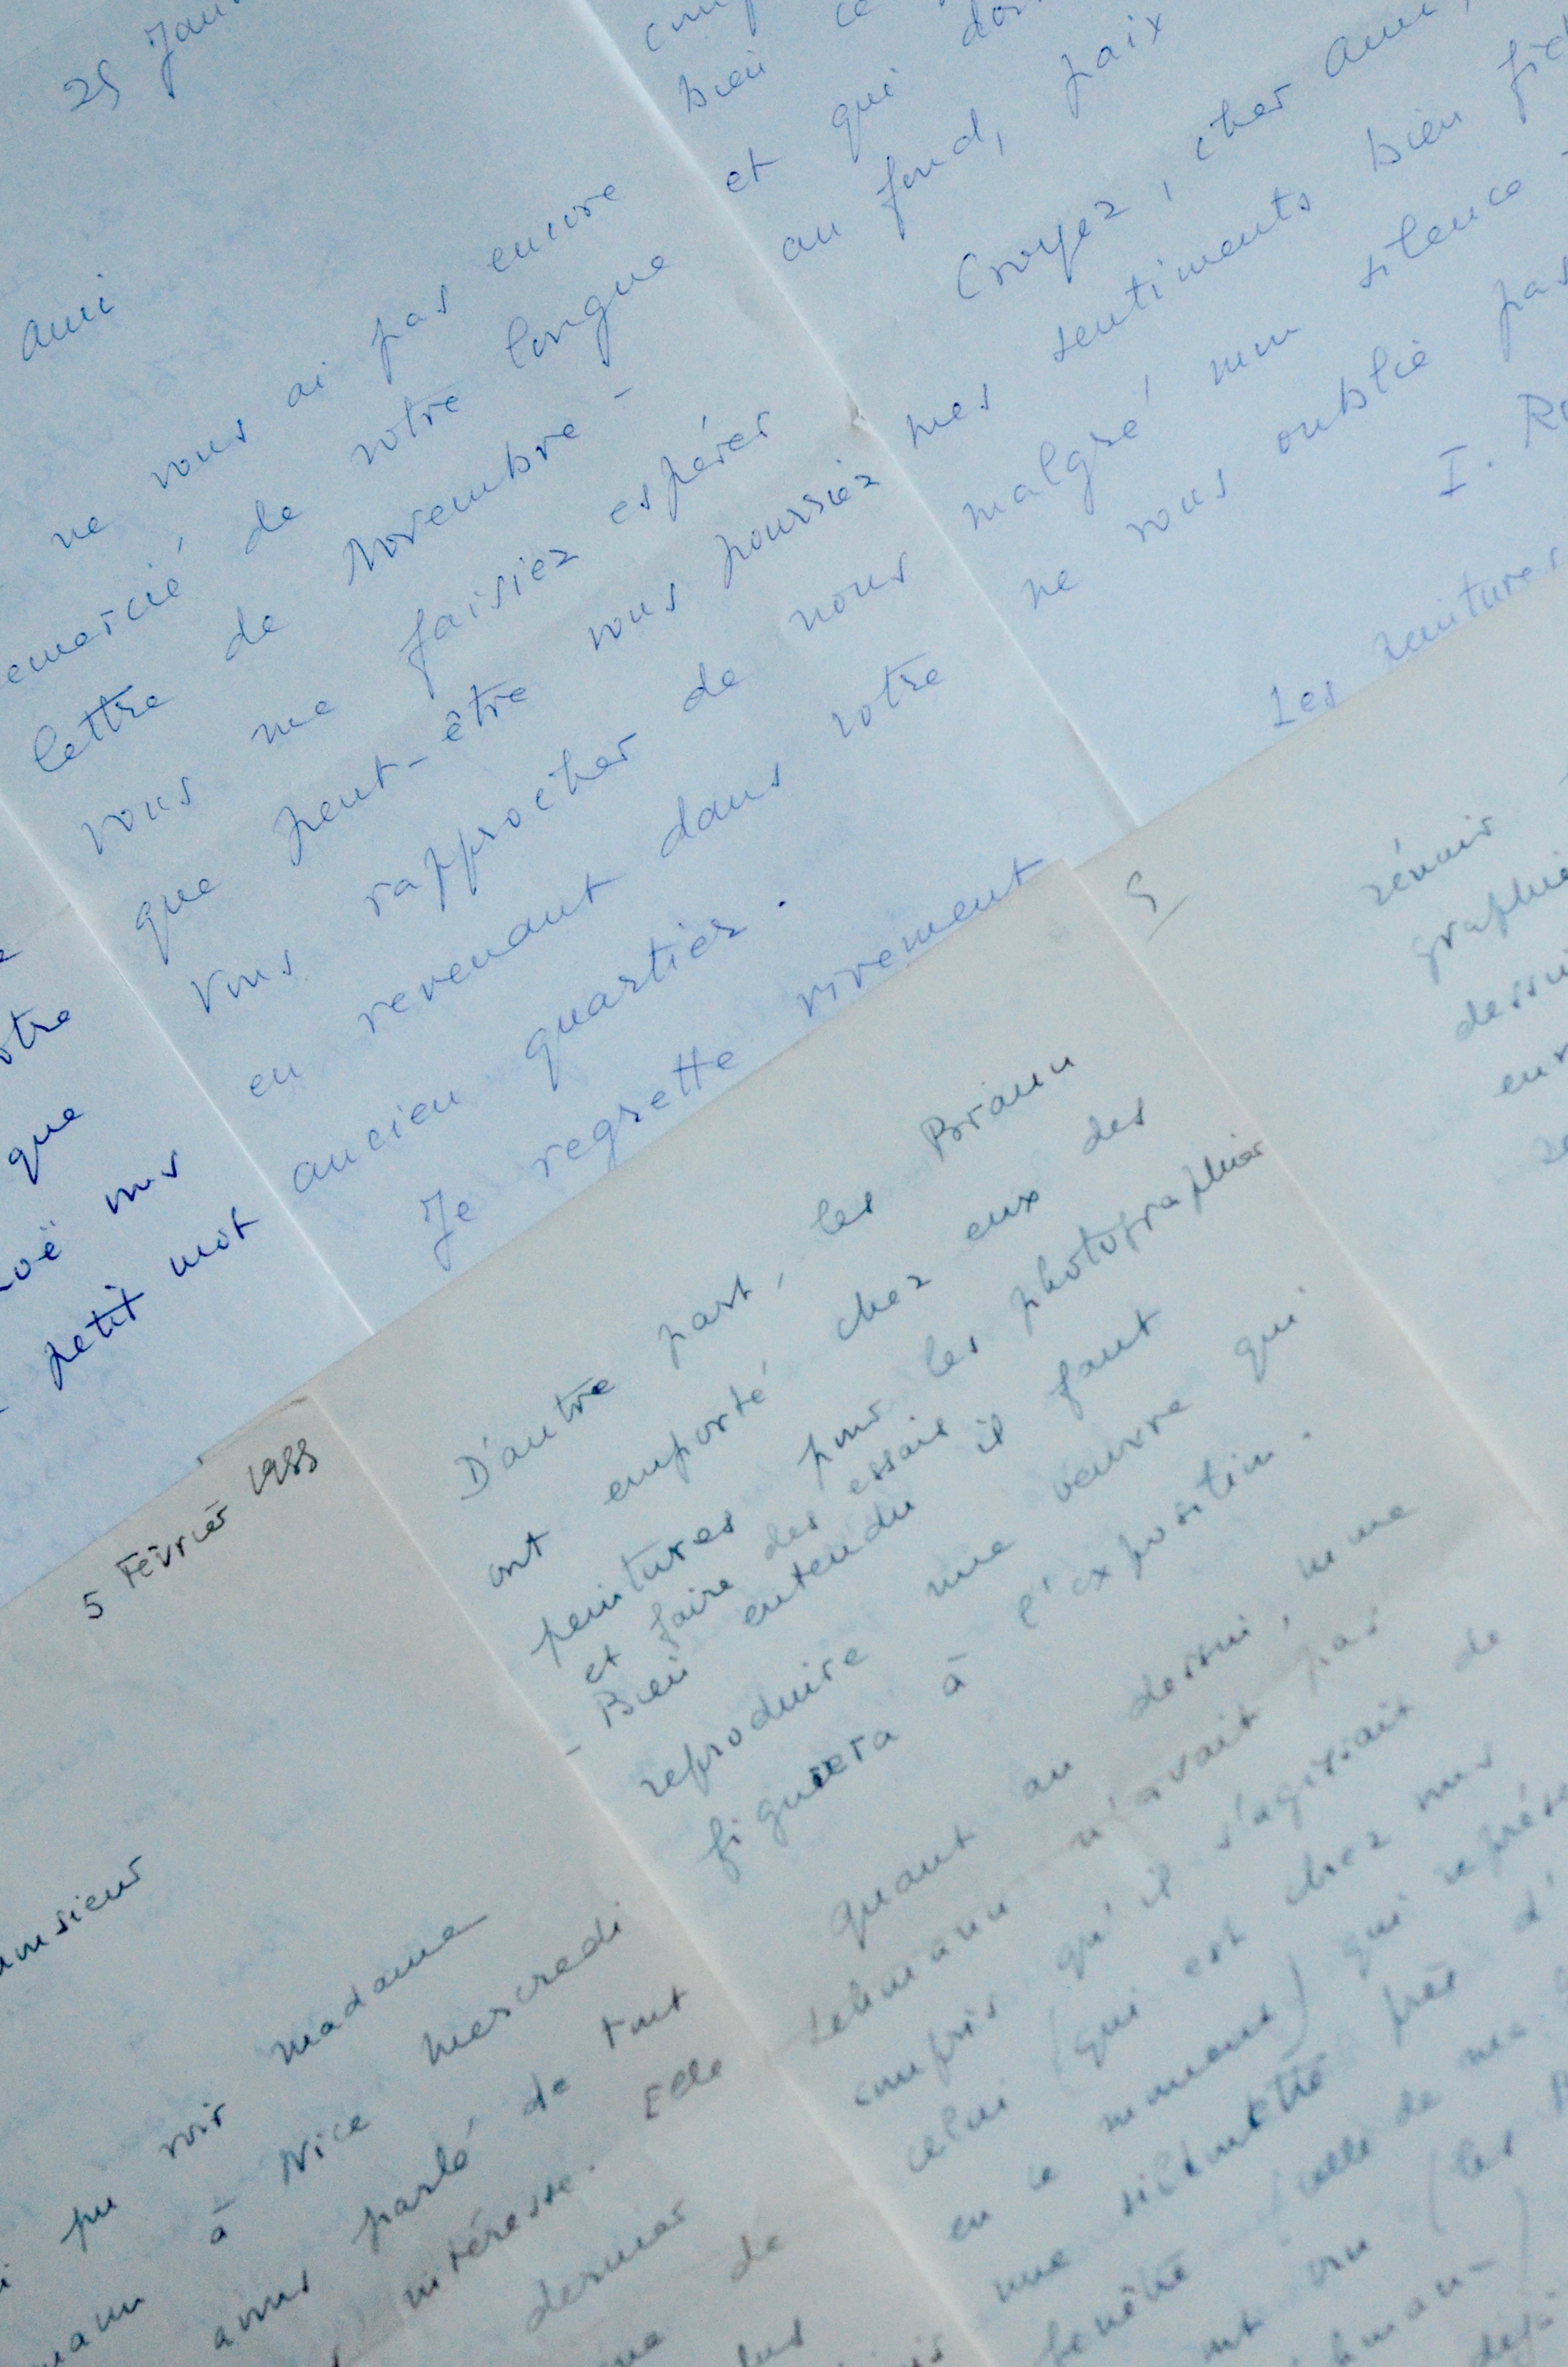 25 Jan
ami
ne vous ai pas encore
emercié de votre longue
lettre de Novembre -
vous me faisiez espérer
que peut-être vous pourriez
vous rapprocher de nous
en revenant dans votre
ancien quartier.
Je regrette vivement
bien ce
et qui
au fond, paix
Croyez, cher ami,
mes sentiments bien
malgré mon silence
ne vous oublie pas
I.
Les peintures
otre
que
petit mot
5 Février 1988
pu voir madame
à Nice mercredi
avons parlé de tout
intéresse. Elle
dernier
de
D'autre part, les Briann
ont emporté chez eux des
peintures pour les photographier
et faire des essais
- Bien entendu il faut
reproduire une oeuvre qui
figurera à l'exposition.
Quant au dessin, Mme
Lehmann n'avait pas
compris qu'il s'agissait de
celui (qui est chez moi
en ce moment) qui représe
une silhouette près d'
fenêtre (celle de ma
ont vu (les
déjà
5
réunir
graphie
dessin